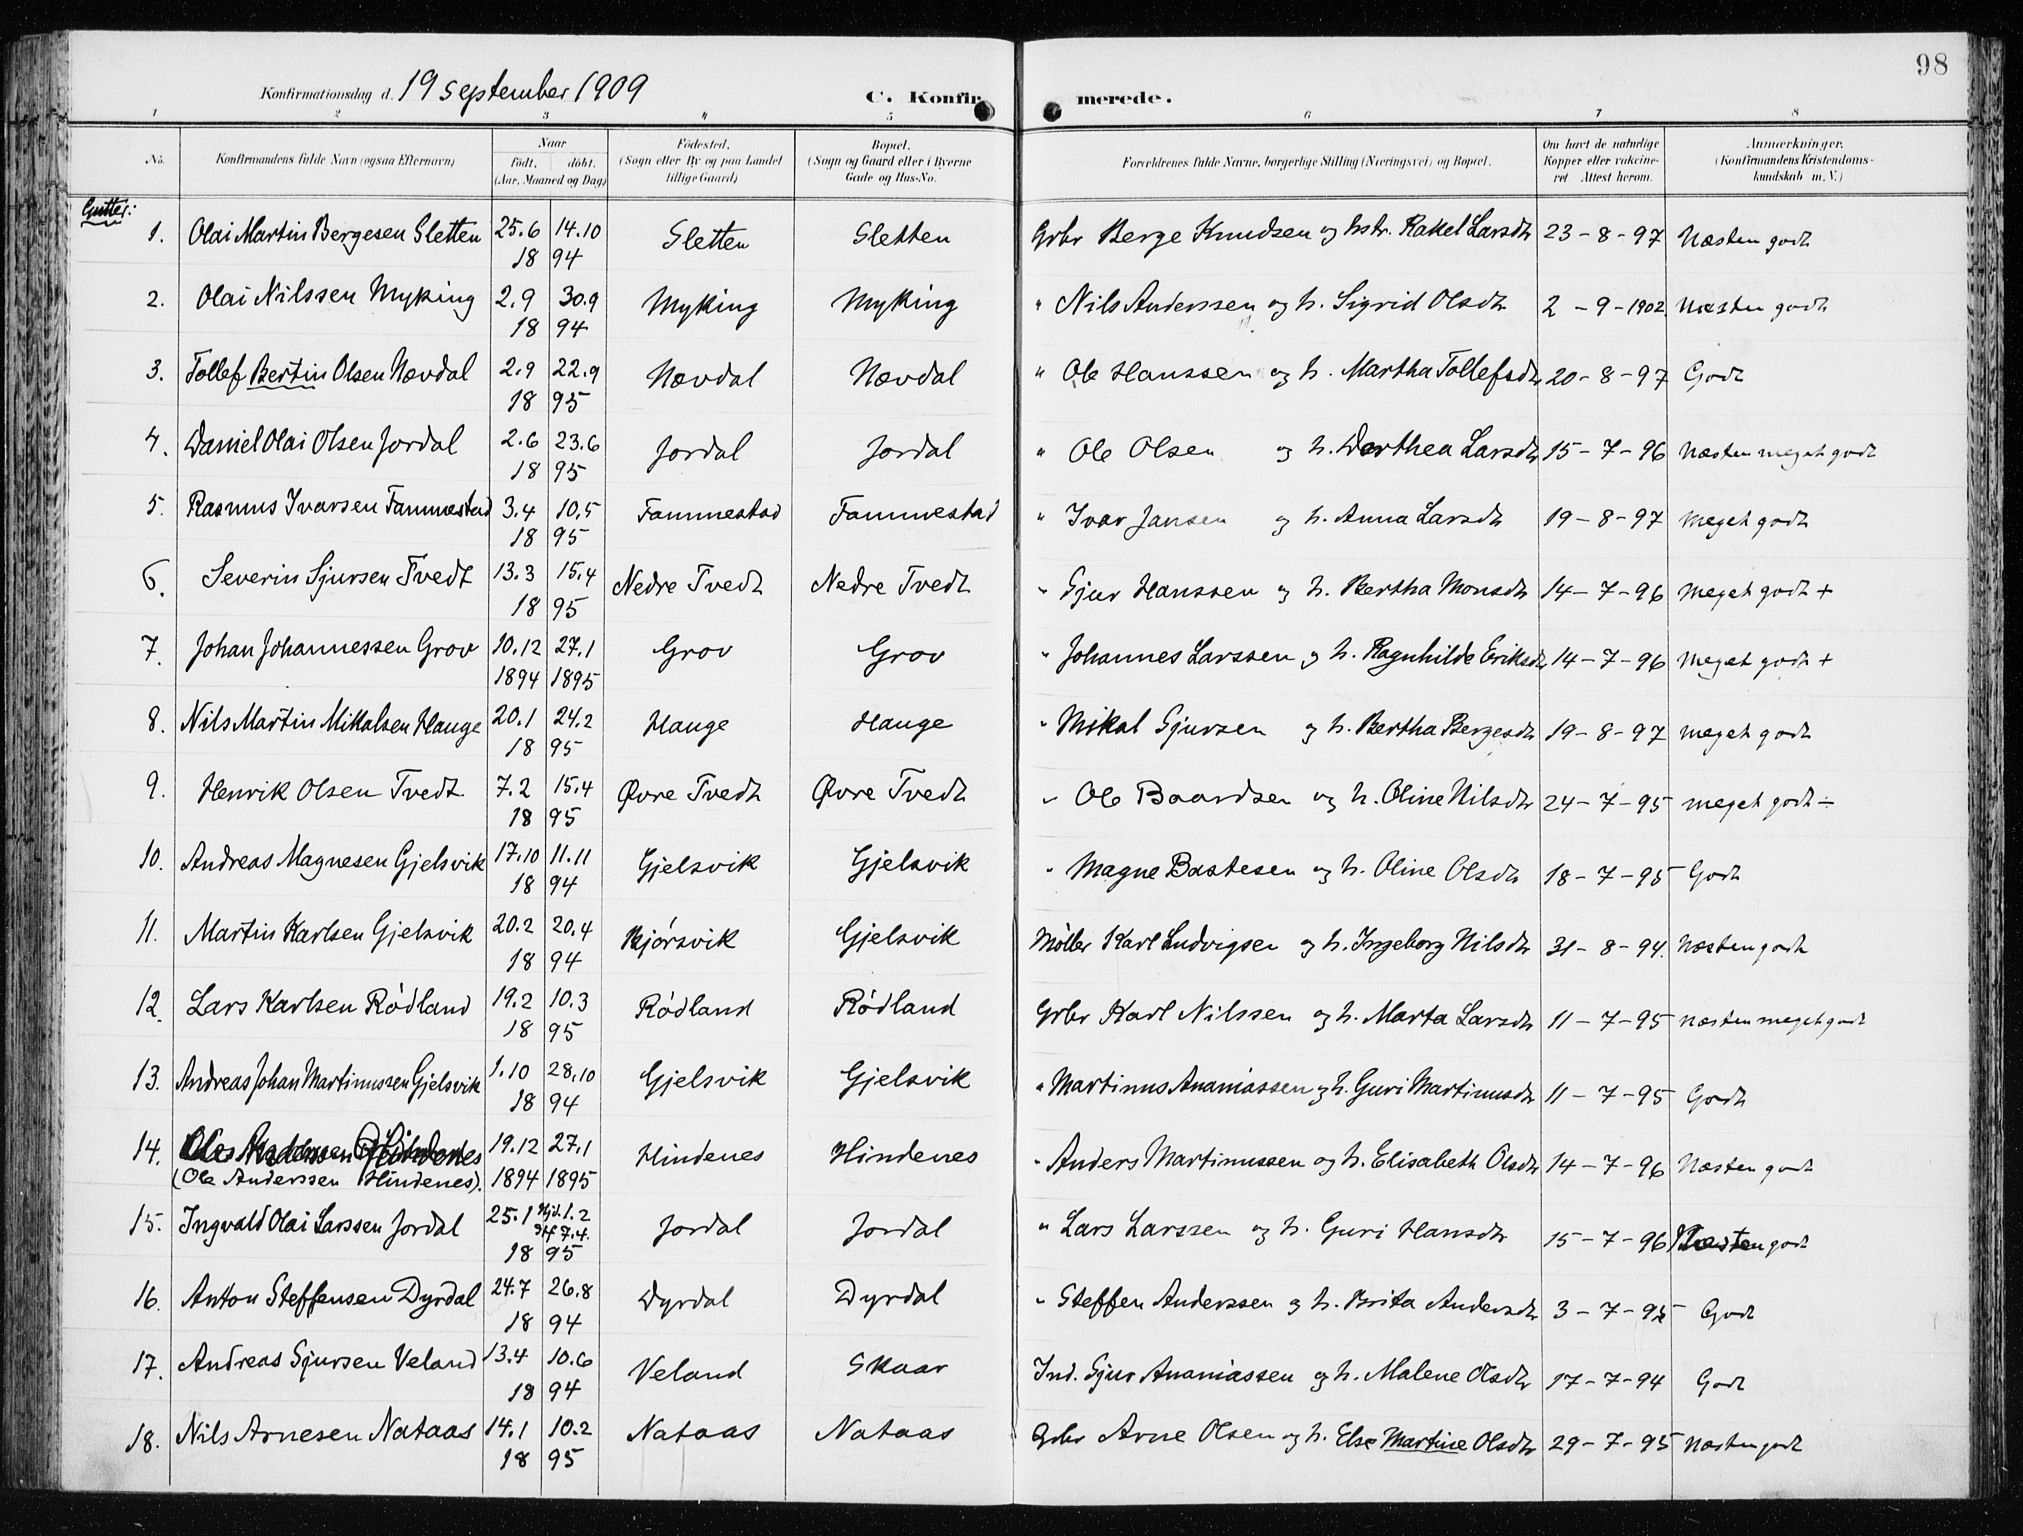 98
Konfirmationsdag d. 19 september 1909 C. Konfirmerede.
1 2 3 4 5 6 7 8
No. Konfirmandens fulde Navn (ogsaa Efternavn) Naar født. døbt. (Aar, Maaned og Dag) Fødested. (Sogn eller By og paa Landet tillige Gaard) Bopæl. (Sogn og Gaard eller i Byerne Gade og Hus-No. Forældrenes fulde Navne, borgerlige Stilling (Næringsvei) og Bopæl. Om havt de naturlige Kopper eller vaccineret Attest herom. Anmærkninger. (Konfirmandens Kristendomskundskab m. V.)
Gutter:
1. Olai Martin Bergesen Sletten 25.6 14.10 Sletten Sletten Grbr Berge Knudsen og hstr. Rakel Larsdtr 23-8-97 Næsten godt
18 94
2. Olai Nilssen Myking 2.9 30.9 Myking Myking " Nils Anderssen og h. Sigrid Olsdtr 2-9-1902 Næsten godt
18 94
3. Tollef Bertin Olsen Nævdal 2.9 22.9 Nævdal Nævdal " Ole Hanssen og h. Martha Tollefsdtr 20-8-97 Godt
18 95
4. Daniel Olai Olsen Jordal 2.6 23.6 Jordal Jordal " Ole Olsen og h. Dorthea Larsdtr 15-7-96 Næsten meget godt
18 95
5. Rasmus Ivarsen Fammestad 3.4 10.5 Fammestad Fammestad " Ivar Jansen og h. Anna Larsdtr 19-8-97 Meget godt
18 95
6. Severin Sjursen Tvedt 13.3 15.4 Nedre Tvedt Nedre Tvedt " Sjur Hanssen og h. Bertha Monsdtr 14-7-96 Meget godt +
18 95
7. Johan Johannessen Grov 10.12 27.1 Grov Grov " Johannes Larssen og h. Ragnhilde Eriksdtr 14-7-96 Meget godt +
1894 1895
8. Nils Martin Mikalsen Hauge 20.1 24.2 Hauge Hauge " Mikal Sjursen og h. Bertha Bergesdtr 19-8-97 Meget godt
18 95
9. Henrik Olsen Tvedt 7.2 15.4 Øvre Tvedt Øvre Tvedt " Ole Baardsen og h. Oline Nilsdtr 24-7-95 Meget godt ÷
18 95
10. Andreas Magnesen Gjelsvik 17.10 11.11 Gjelsvik Gjelsvik " Magne Bastesen og h. Oline Olsdtr 18-7-95 Godt
18 94
11. Martin Karlsen Gjelsvik 20.2 20.4 Bjørsvik Gjelsvik Møller Karl Ludvigsen og h. Ingeborg Nilsdtr 31-8-94. Næsten godt
18 94
12. Lars Karlsen Rødland 19.2 10.3 Rødland Rødland Grbr Karl Nilssen og h. Marta Larsdtr 11-7-95 Næsten meget godt
18 95
13. Andreas Johan Martinussen Gjelsvik 1.10 28.10 Gjelsvik Gjelsvik " Martinus Ananiassen og h. Guri Martinusdtr 11-7-95 Godt
18 94
14. Hindenes 19.12 27.1 Hindenes Hindenes " Anders Martinussen og h. Elisabeth Olsdtr 14-7-96 Næsten godt
(Ole Anderssen Hindenes). 1894 1895
15. Ingvald Olai Larssen Jordal 25.1 Hjd. 1.2 Jordal Jordal " Lars Larssen og h. Guri Hansdtr 15-7-96 Næsten godt
7.4.
18 95
16. Anton Steffensen Dyrdal 24.7 26.8 Dyrdal Dyrdal " Steffen Anderssen og h. Brita Andersdtr 3-7-95 Godt
18 94
17. Andreas Sjursen Veland 13.4 10.6 Veland Skaar Ind. Sjur Ananiassen og h. Malene Olsdtr 17-7-94 Godt
18 94
18. Nils Arnesen Nataas 14.1 10.2 Nataas Nataas Grbr Arne Olsen og h. Else Martine Olsdtr 29-7-95 Næsten godt
18 95